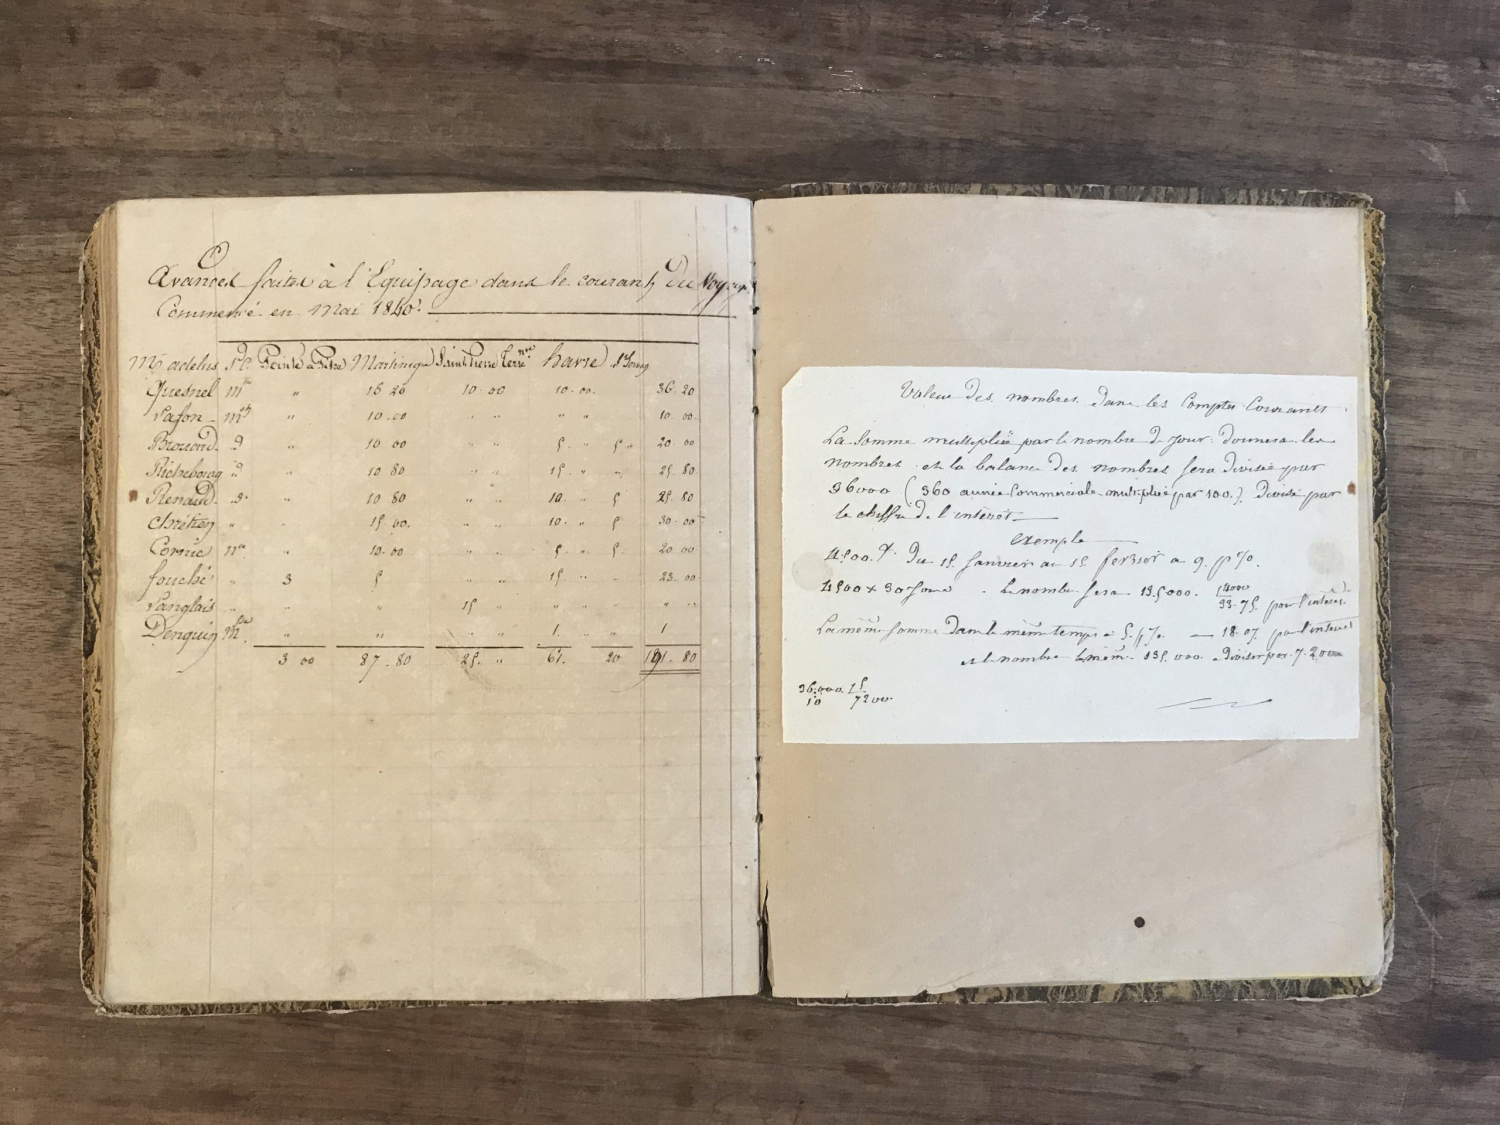 Avances faites à l'Equipage dans le courant du Voyage
Commencé en Mai 1840.
Pointe à Pitre Martinique Saint Pierre Terre nve havre
Quesnel " 16 20 10 00 10. 00. 36. 20
Lafon " 10. 00 " " 10. 00.
Brouard d " 10 00 " " 5. " 5 " 20. 00
Richebourg d " 10 80 " " 15. " " 25. 80
Renaud d " 10 80 " " 10. " 5 25. 80
Chrétien " " 15. 00. 10. " 5 30. 00
Cornic " 10. 00 " " 5. " 5. 20 00
fouché " 3 5 " " 15 " " 23. 00
Langlais " " " 15 " " " " "
Denquin " " " " 1. " " 1
3 00 87. 80 25. " 61. 20 191. 80
Valeur des nombres dans les Comptes Courants.
La Somme multipliée par le nombre d jour donnera les
nombres et la balance des nombres sera Divisée par
36000 (360 année Commerciale multipliée par 100.) Divisé par
le chiffre de l'interêt
Exemple
4500. f. Du 15 Janvier au 15 fevrier a 9. p%.
4500 x 30 le nombre sera 135000. 4000
33.75 par l'intérêt
La même somme Dans le même temps a 5. p%. — 18.07 par l'intérêt
et le nombre le même 135.000 a diviser par 7.2000
36.000. 5
10 7200.